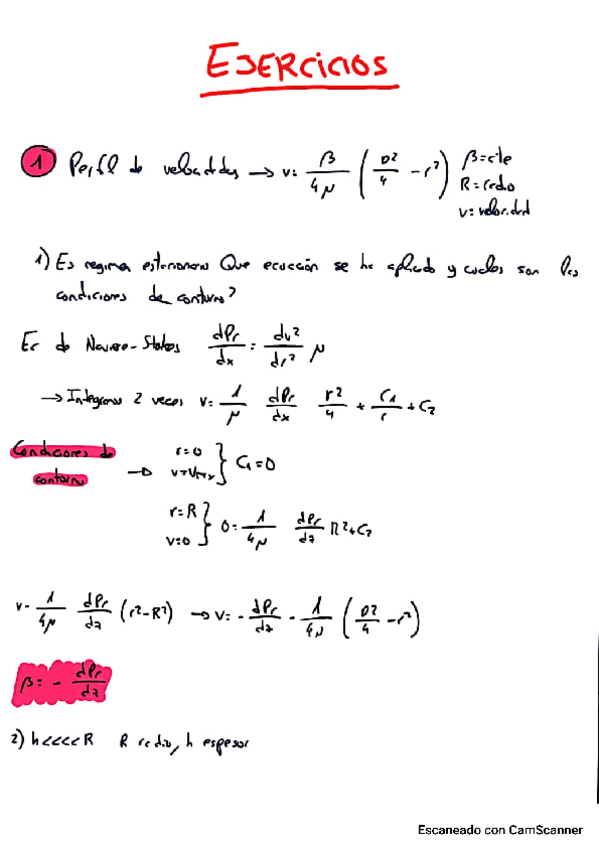 EJERCICIOS
1 Perfil de velocidades → v= β/4μ (D²/4 - r²) β=cte
R=radio
v=velocidad
1) Es regimen estacionario Que ecuación se ha aplicado y cuales son las
condiciones de contorno?
Ec de Navier-Stokes dPr/dx = dv²/dr² μ
→ Integramos 2 veces v= 1/μ dPr/dx r²/4 + C1/r + C2
Condiciones de contorno → r=0 v=vmax } C1=0
r=R v=0 } 0= 1/4μ dPr/dz R²+C2
v= 1/4μ dPr/dz (r²-R²) → v= - dPr/dz - 1/4μ (D²/4 - r²)
β= - dPr/dz
2) h<<<<R R radio, h espesor
Escaneado con CamScanner